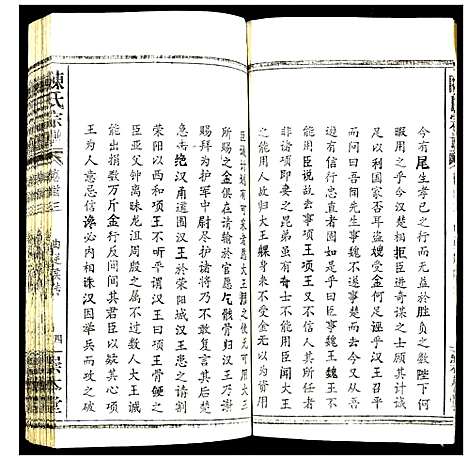 今有尾生孝己之行而無益於勝負之數陛下何
暇用之乎今楚漢相拒臣進奇謀之士顧其計誠
足以利國家否耳盜嫂受金何足疑乎漢王召平
而問曰吾聞先生事魏不遂事楚而去今又從吾
遊信行忠直者固如是乎曰臣事魏王魏王不
能用臣說故去事項王項王又不信人其所任者
非諸項即妻之昆弟雖有奇士不能用臣聞大王
之能用人故歸大王躶身來不受金無以為資
臣誠計畫有可采者願大王用之使無可用大王
所賜之金俱在請輸於官願乞骸骨歸漢王乃謝
賜拜為護軍中尉盡護諸將乃不敢復言其後楚
急擊絕漢甬道圍漢王於滎陽城漢王患之請割
滎陽以西和項王不聽平謂漢王曰項王骨鯁之
臣亞父鍾離眛龍且周殷之屬不過數人大王誠
能出捐數萬斤金行反間間其君臣以疑其心項
王為人意忌信讒必內相誅漢因舉兵而攻之破
陳氏宗譜
卷首三
四
崇本堂